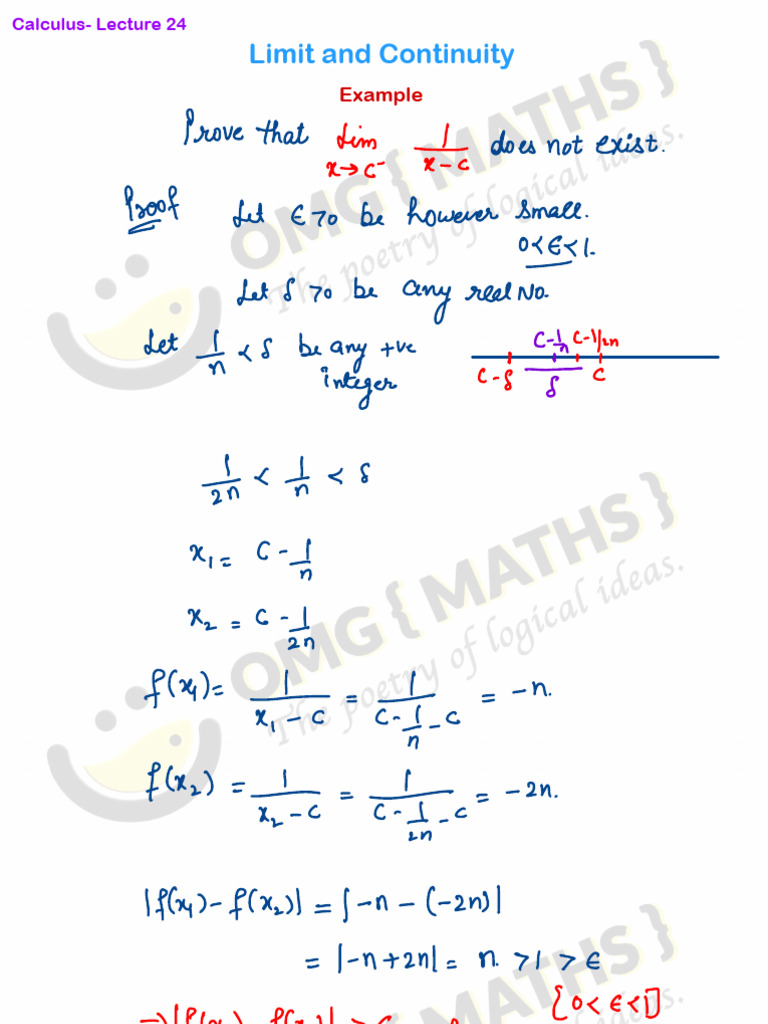 Calculus- Lecture 24
Limit and Continuity
Example
Prove that lim x→c⁻ 1/(x-c) does not exist.
Proof Let ϵ>0 be however small.
0<ϵ<1.
Let δ>0 be any real No.
Let 1/n < δ be any +ve
integer
c-1/n c-1/2n
c-δ δ c
1/2n < 1/n < δ
x₁= c-1/n
x₂ = c-1/2n
f(x₁)= 1/(x₁-c) = 1/(c-1/n-c) = -n.
f(x₂) = 1/(x₂-c) = 1/(c-1/2n-c) = -2n.
|f(x₁)-f(x₂)| = |-n-(-2n)|
= |-n+2n| = n. >1 > ϵ
{0<ϵ<1}
OMG{MATHS}
The poetry of logical ideas.
OMG{MATHS}
The poetry of logical ideas.
OMG{MATHS}